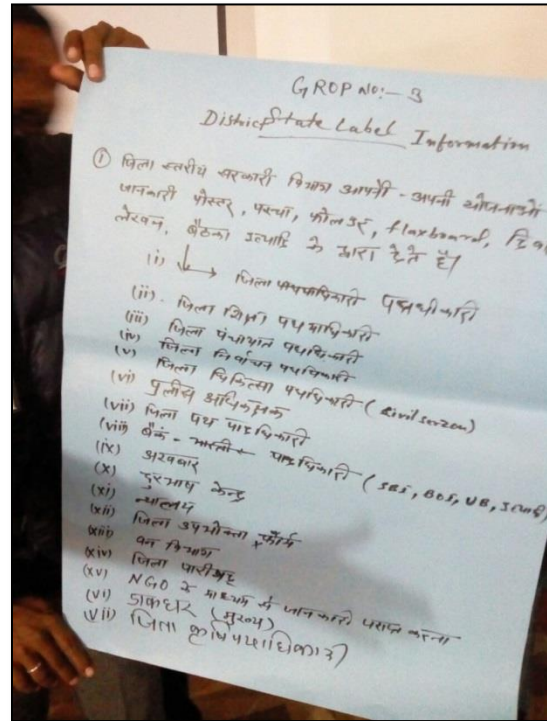 GROP NO:- 3
District State Label Information
① जिला स्तरीय सरकारी विभाग आपनी - अपनी योजनाओं
जानकारी पोस्टर, परचा, फोलडर, flaxboard, दिवा
लेखन, बैठका इत्यादि के द्वारा देते है।
(i) जिला पदाधिकारी
(ii). जिला शिक्षा पदाधिकारी
(iii) जिला पंचायत पदाधिकारी
(iv) जिला निर्वाचन पदाधिकारी
(v) जिला चिकित्सा पदाधिकारी (civil serzen)
(vi) पुलीस अधिक्षक
(vii) जिला पथ पदाधिकारी
(viii) बैंक - पदाधिकारी (SBI, BOI, UB, इत्यादि)
(ix) अखबार
(x) दुरभाष केन्द्र
(xi) न्यालय
(xii) जिला उपभोक्ता फोर्म
(xiii) वन विभाग
(xiv) जिला पारीषद
(xv) NGO के माध्यम से जानकारी पराप्त करना
(vi) डाकघर (मुख्य)
(vii) जिला कृषि पदाधिकारी